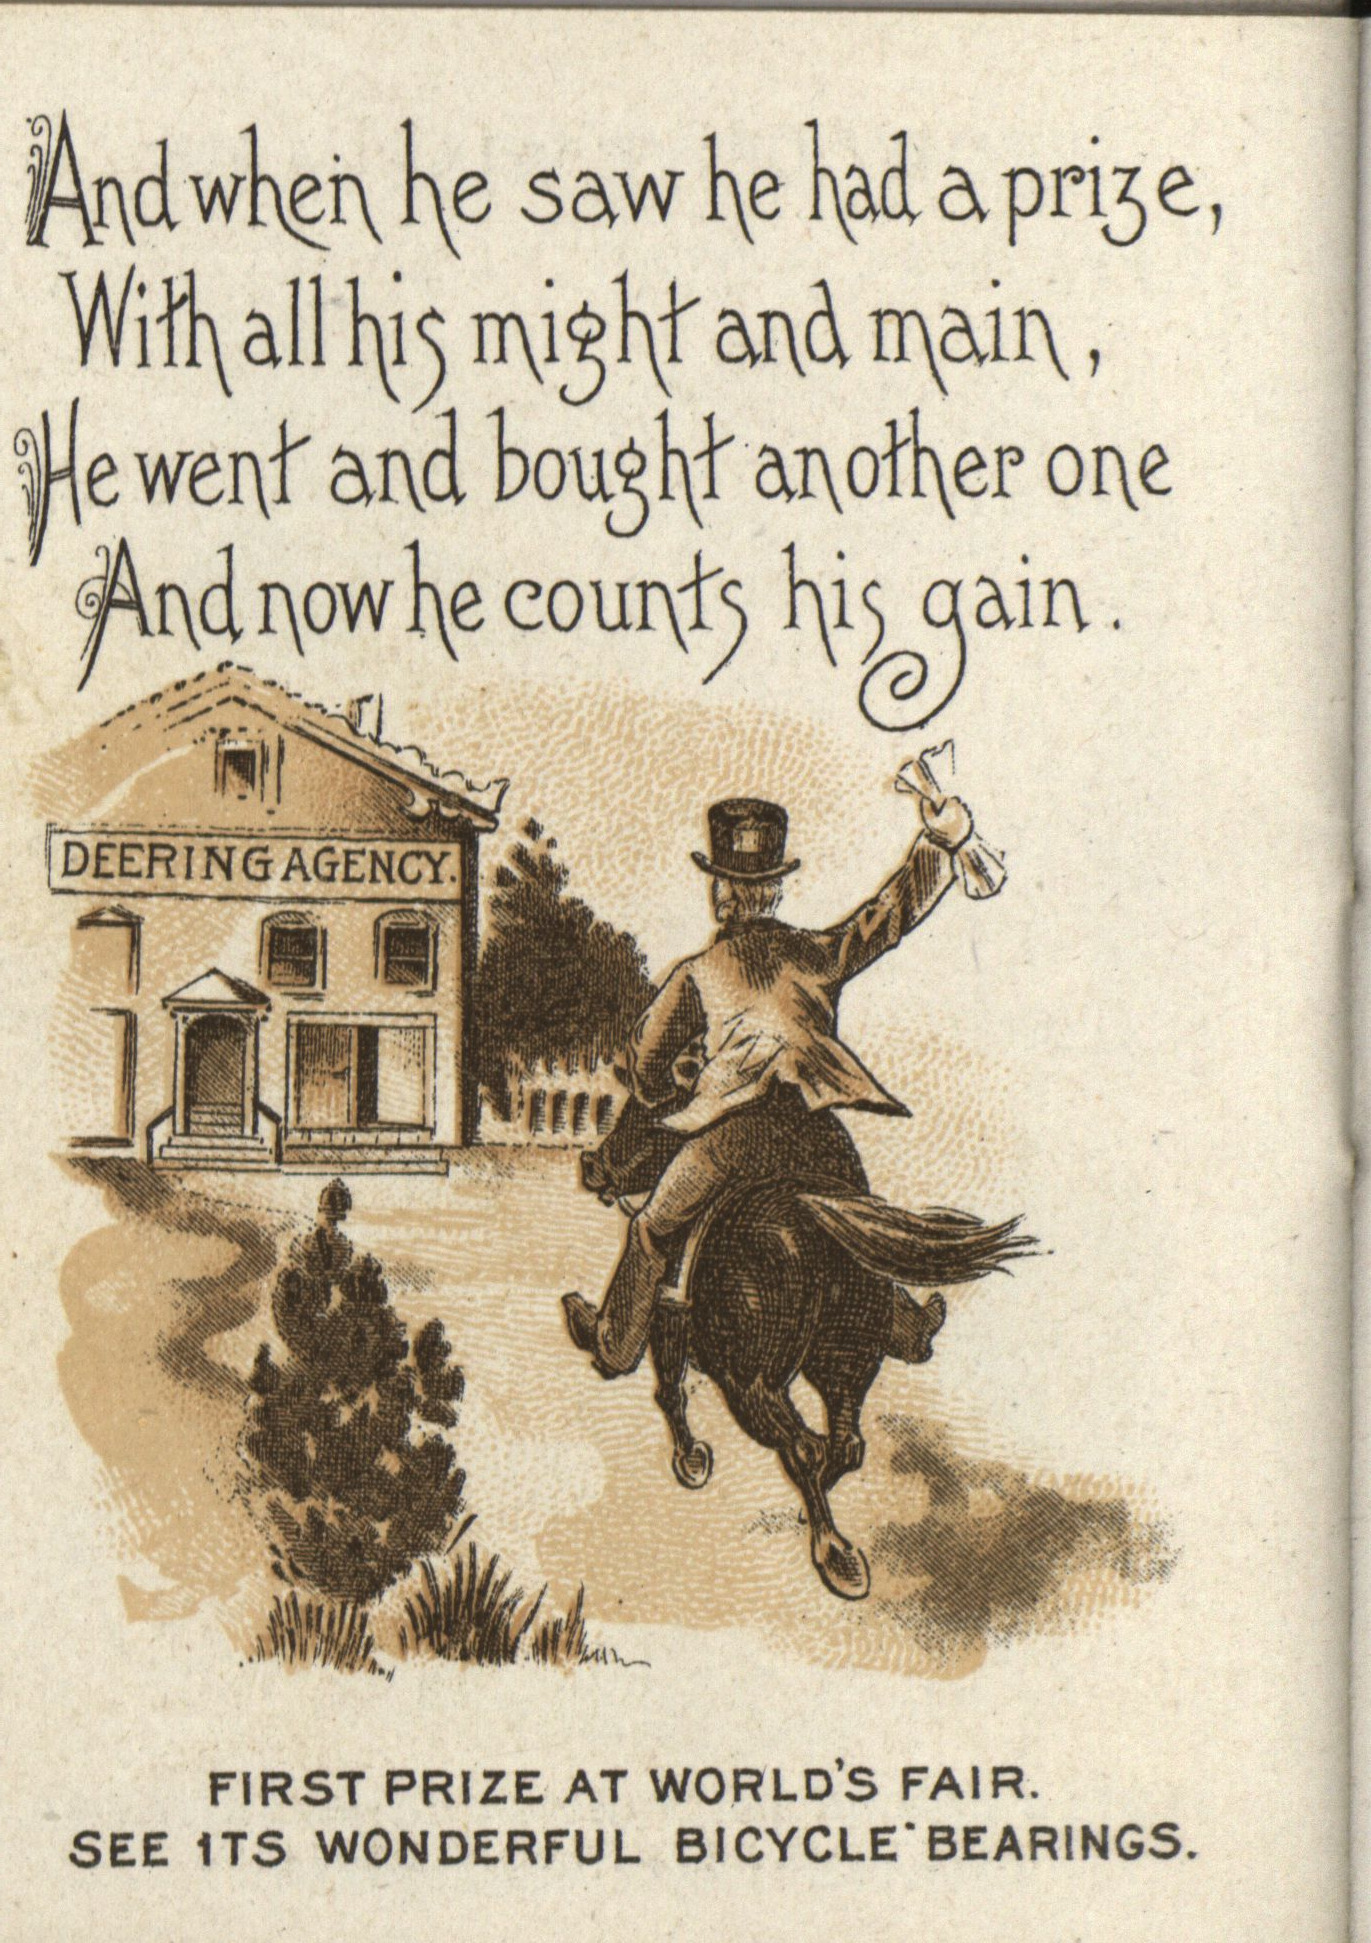 And when he saw he had a prize,
With all his might and main,
He went and bought another one
And now he counts his gain.
DEERING AGENCY.
FIRST PRIZE AT WORLD'S FAIR.
SEE ITS WONDERFUL BICYCLE BEARINGS.